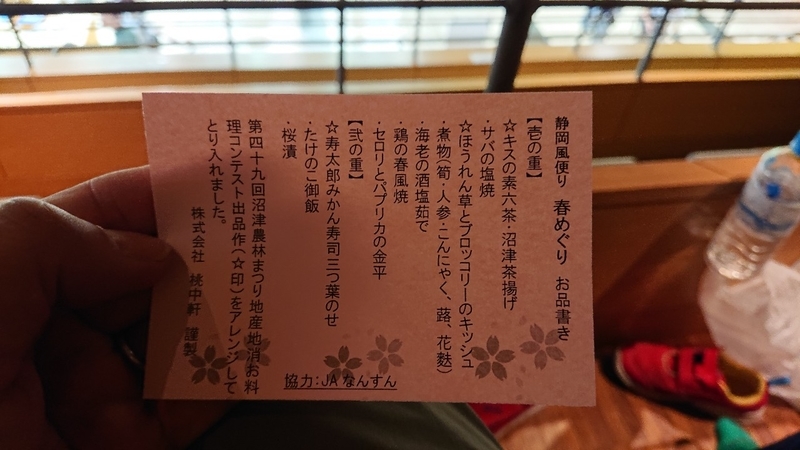 静岡風便り 春めぐり お品書き
【壱の重】
☆キスの素六茶・沼津茶揚げ
・サバの塩焼
☆ほうれん草とブロッコリーのキッシュ
・煮物(筍・人参・こんにゃく、蕗、花麩)
・海老の酒塩茹で
・鶏の春風焼
・セロリとパプリカの金平
【弐の重】
☆寿太郎みかん寿司三つ葉のせ
・たけのこ御飯
・桜漬
第四十九回沼津農林まつり地産地消お料
理コンテスト出品作(☆印)をアレンジして
とり入れました。
株式会社 桃中軒 謹製
協力:JAなんすん